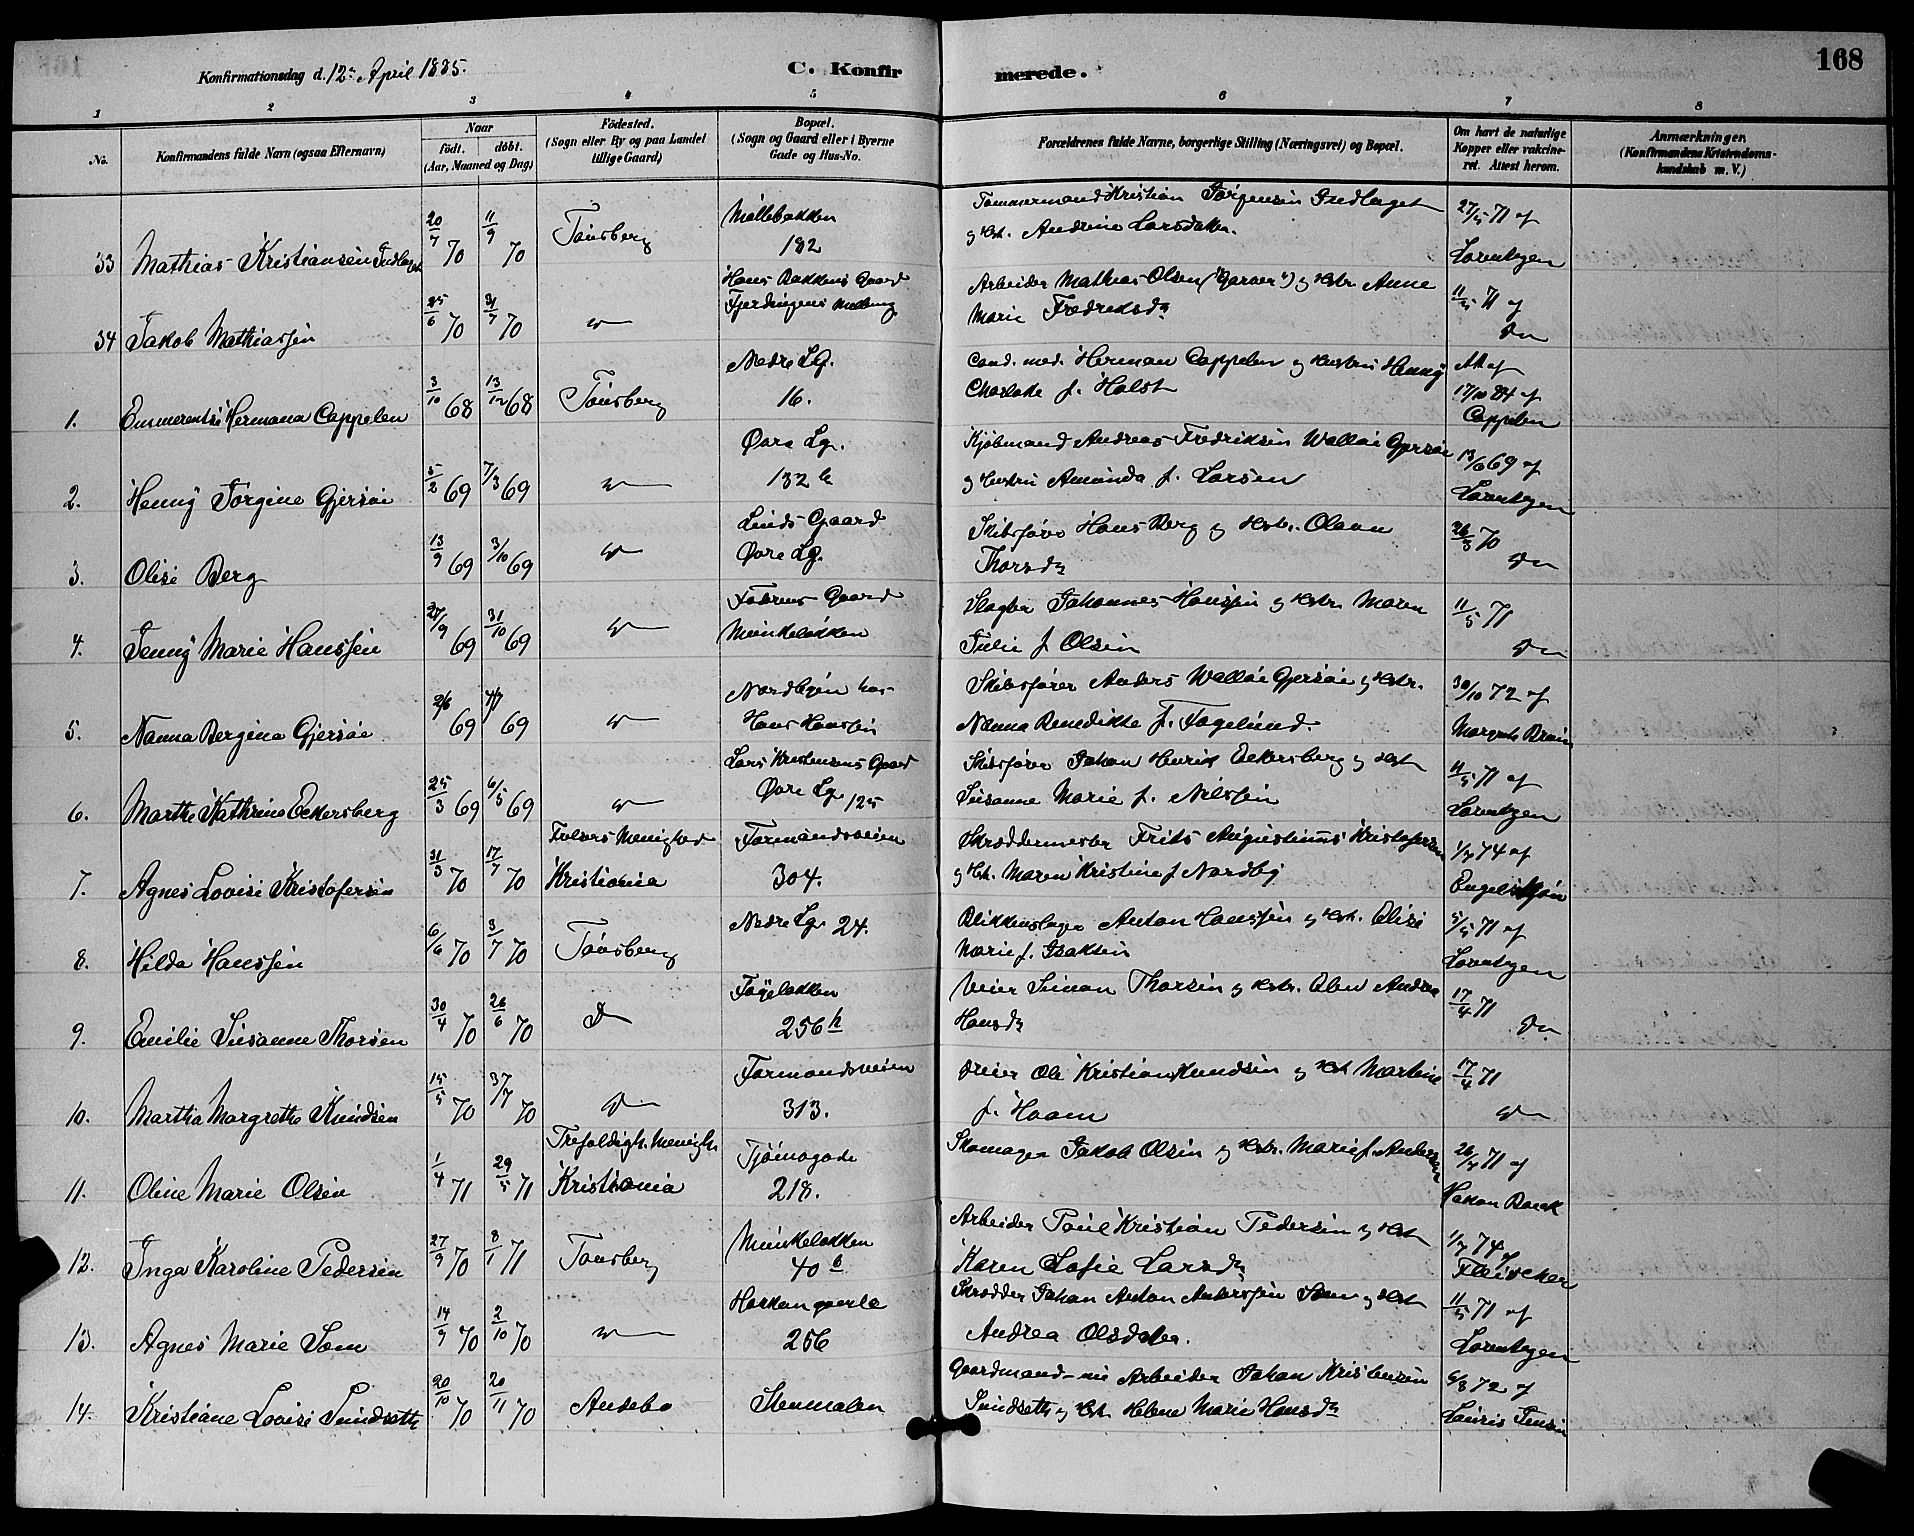 Konfirmationsdag d. 12te April 1885.
C. Konfirmerede.
168
1 2 3 4 5 6 7 8
No.
Konfirmandens fulde Navn (ogsaa Efternavn)
Naar
født. døbt.
(Aar, Maaned og Dag)
Fødested.
(Sogn eller By og paa Landet
tillige Gaard)
Bopæl.
(Sogn og Gaard eller i Byerne
Gade og Hus-No.
Forældrenes fulde Navne, borgerlige Stilling (Næringsvei) og Bopæl.
Om havt de naturlige
Kopper eller vakcine-
ret. Attest herom.
Anmærkninger,
(Konfirmandens Kristendoms-
kundskab m. V.)
33 Mathias Kristiansen 20/7 70 11/9 70 Tønsberg
Møllebakken
182
Tømmermand Kristian Jørgensen
og Hst. Andrine Larsdatter.
27/5 71 af
Lorentzen
34 Jakob Mathiassen 25/6 70 31/7 70 Do
Hans Bakkens Gaard
Fjerdingens
Arbeider Mathias Olsen ("Garver") og Hstr. Anne
Marie Fredriksdr
11/5 71 af
Do
1. Emmerentse Hermana Cappelen 3/10 68 13/12 68 Tønsberg
Nedre Lg.
16.
Cand. med. Herman Cappelen og Hustru Henny
Charlotte f. Holst
Att af
17/10 84 af
Cappelen
2. Henny Jørgine Gjersøe 5/2 69 7/3 69 Do
Øvre Lg.
132 b
Kjøbmand Andreas Fredriksen Walløe Gjersøe
og Hustru Amanda f. Larsen
13/10 69 af
Lorentzen
3. Olise Berg 13/9 69 3/10 69 Do
Linds Gaard
Øvre Lg.
Skibsfører Hans Berg og Hstr. Olava
Thorsdr
26/3 70
Do
4. Jenny Marie Hanssen 27/9 69 31/10 69 Do
Gaard
Munkeløkken
Slagter Johannes Hanssen og Hstr. Maren
Julie f Olsen
11/5 71
Do
5. Nanna Bergina Gjersøe 2/6 69 4/7 69 Do
Nordbyen hos
Hans Hanssen
Skibsfører Anders Walløe Gjersøe og Hstr.
Nanna Benedikte f. Fogelund.
30/10 72 af
6. Marthe Kathrine Eckersberg 25/3 69 6/5 69 Do
Lars Kristensens Gaard
Øvre Lg. 125
Skibsfører Johan Henrik Eckersberg og Hst
Susanne Marie f. Nilssen
11/5 71 af
Lorentzen
7. Agnes Lovise Kristofersen 31/3 70 17/7 70
Menighed
Kristiania
Formandsveien
304.
Skræddermester Frits Augustinus Kristofersen
og Hst. Maren Kristine f Nordby
1/7 74 af
8. Hilda Hanssen 6/6 70 3/7 70 Tønsberg
Nedre Lg. 24.
Blikkenslager Anton Hanssen og Hst. Elise
Marie f. Isaksen
5/5 71 af
Lorentzen
9. Emilie Susanne Thorsen 30/4 70 26/6 70 Do
Fogeløkken
256 h
Veier Simon Thorsen og Hstr. Elen Andrea
Hansdr
17/4 71
Do
10. Martha Margrethe Knudsen 15/5 70 3/7 70 Do
Formandsveien
313.
Dreier Ole Kristian Knudsen og Hst Martine
f. Haam
17/4 71
Do
11. Oline Marie Olsen 1/4 71 29/5 71
Trefoldigh. Menigh.
Kristiania
Tjømegade
218.
Skomager Jakob Olsen og Hstr. Marie f. Andersen
26/7 71 af
12. Inga Karoline Pedersen 27/9 70 8/1 71 Tønsberg
Munkeløkken
40 b
Arbeider Poul Kristian Pedersen og Hst
Karen Sofie Larsdr
1/7 74 af
Fleischer
13. Agnes Marie Som 14/9 70 2/10 70 Do
Haakon gamle
256
Skrædder Johan Anton Anderssen Som og Hst
Andrea Olsdatter.
11/5 71 af
Lorentzen
14. Kristiane Lovise Sundseth 20/10 70 20/11 70 Andebo
Stenmalen
Gaardmand – nu Arbeider Johan Kristensen
Sundseth og Hst. Helene Marie Hansdr
6/8 72 af